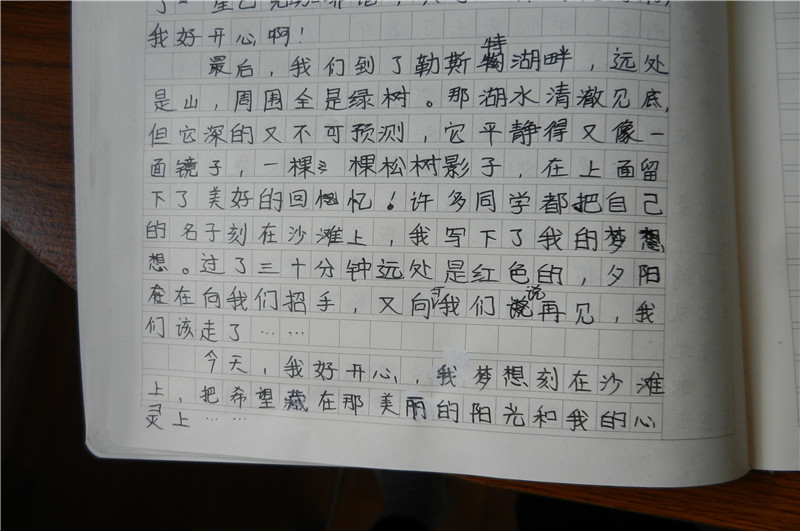 我好开心啊！
最后，我们到了勒斯特湖畔，远处
是山，周围全是绿树。那湖水清澈见底，
但它深的又不可预测，它平静得又像一
面镜子，一棵棵松树影子，在上面留
下了美好的回忆！许多同学都把自己
的名子刻在沙滩上，我写下了我的梦想
想。过了三十分钟远处是红色的，夕阳
在向我们招手，又向我们说再见，我
们该走了……
今天，我好开心，我梦想刻在沙滩
上，把希望藏在那美丽的阳光和我的心
灵上……